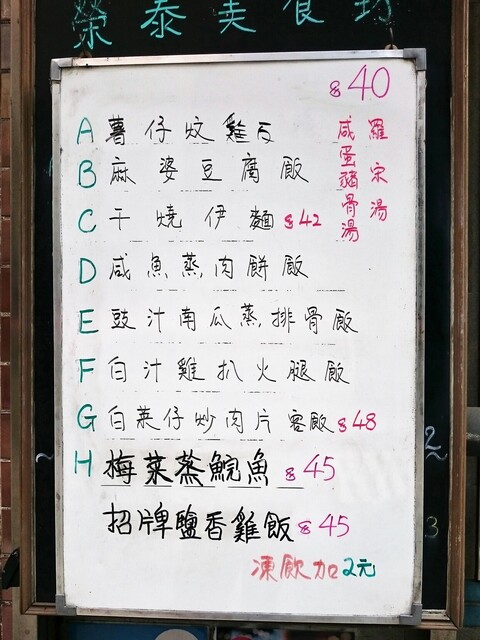 榮泰美食坊
$40
羅宋湯
咸蛋豬骨湯
A 薯仔炆雞反
B 麻婆豆腐飯
C 干燒伊麵 $42
D 咸魚蒸肉餅飯
E 豉汁南瓜蒸排骨飯
F 白汁雞扒火腿飯
G 白菜仔炒肉片客飯 $48
H 梅菜蒸鯇魚 $45
招牌鹽香雞飯 $45
凍飲加2元